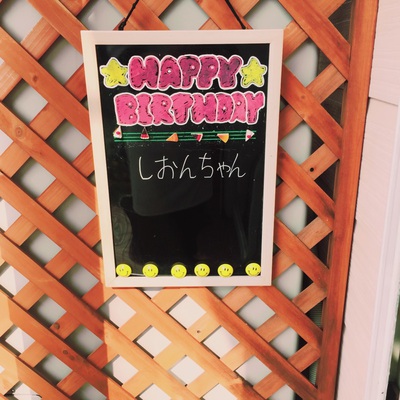 HAPPY
BIRTHDAY
しおんちゃん